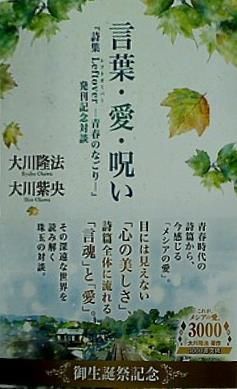 言葉・愛・呪い
『詩集 Leftover ―青春のなごり―』
レフトオーバー
発刊記念対談
大川隆法
Ryuho Okawa
大川紫央
Shio Okawa
青春時代の
詩篇から、
今感じる
「メシアの愛」。
目には見えない
「心の美しさ」、
詩篇全体に流れる
「言魂」と「愛」。
その深遠な世界を
読み解く
珠玉の対談。
これが、
メシアの愛。
3000
大川隆法 著作
3000書突破
御生誕祭記念